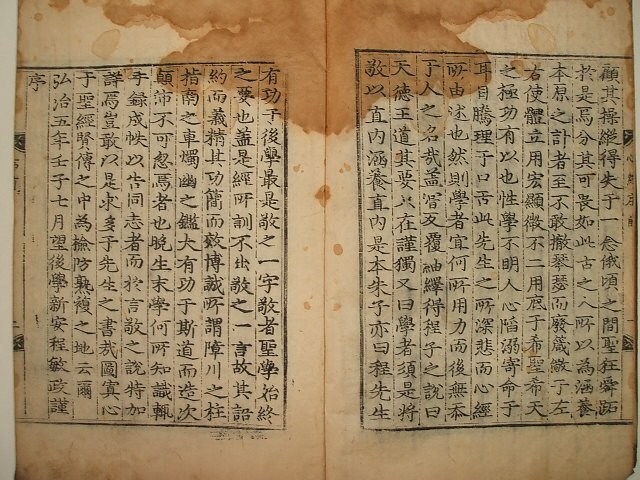 顧其操縱得失于一念俄頃之間聖狂舜跖
於是焉分其可畏如此古之人所以為涵養
本原之計者至不敢撤琴瑟而廢箴儆于左
右使體立用宏顯微不二用底于希聖希天
之極功有以也性學不明人心陷溺寄命于
耳目騰理于口舌此先生之所深悲而心經
所由述也然則學者宜何所用力而後無忝
于人之名哉蓋嘗反覆紬繹得程子之說曰
天德王道其要只在謹獨又曰學者須是將
敬以直內涵養直內是本朱子亦曰程先生
有功于後學最是敬之一字敬者聖學始終
之要也蓋是經所訓不出敬之一言故其詔
約而義精其功簡而效博誠所謂障川之柱
指南之車燭幽之鑑大有功于斯道而造次
顛沛不可忽焉者也晚生末學何所知識輒
手錄成帙以告同志者而於言敬之說特加
詳焉豈敢以是求多于先生之書哉圖寘心
于聖經賢傳之中為檢防熟複之地云爾
弘治五年壬子七月望後學新安程敏政謹
序